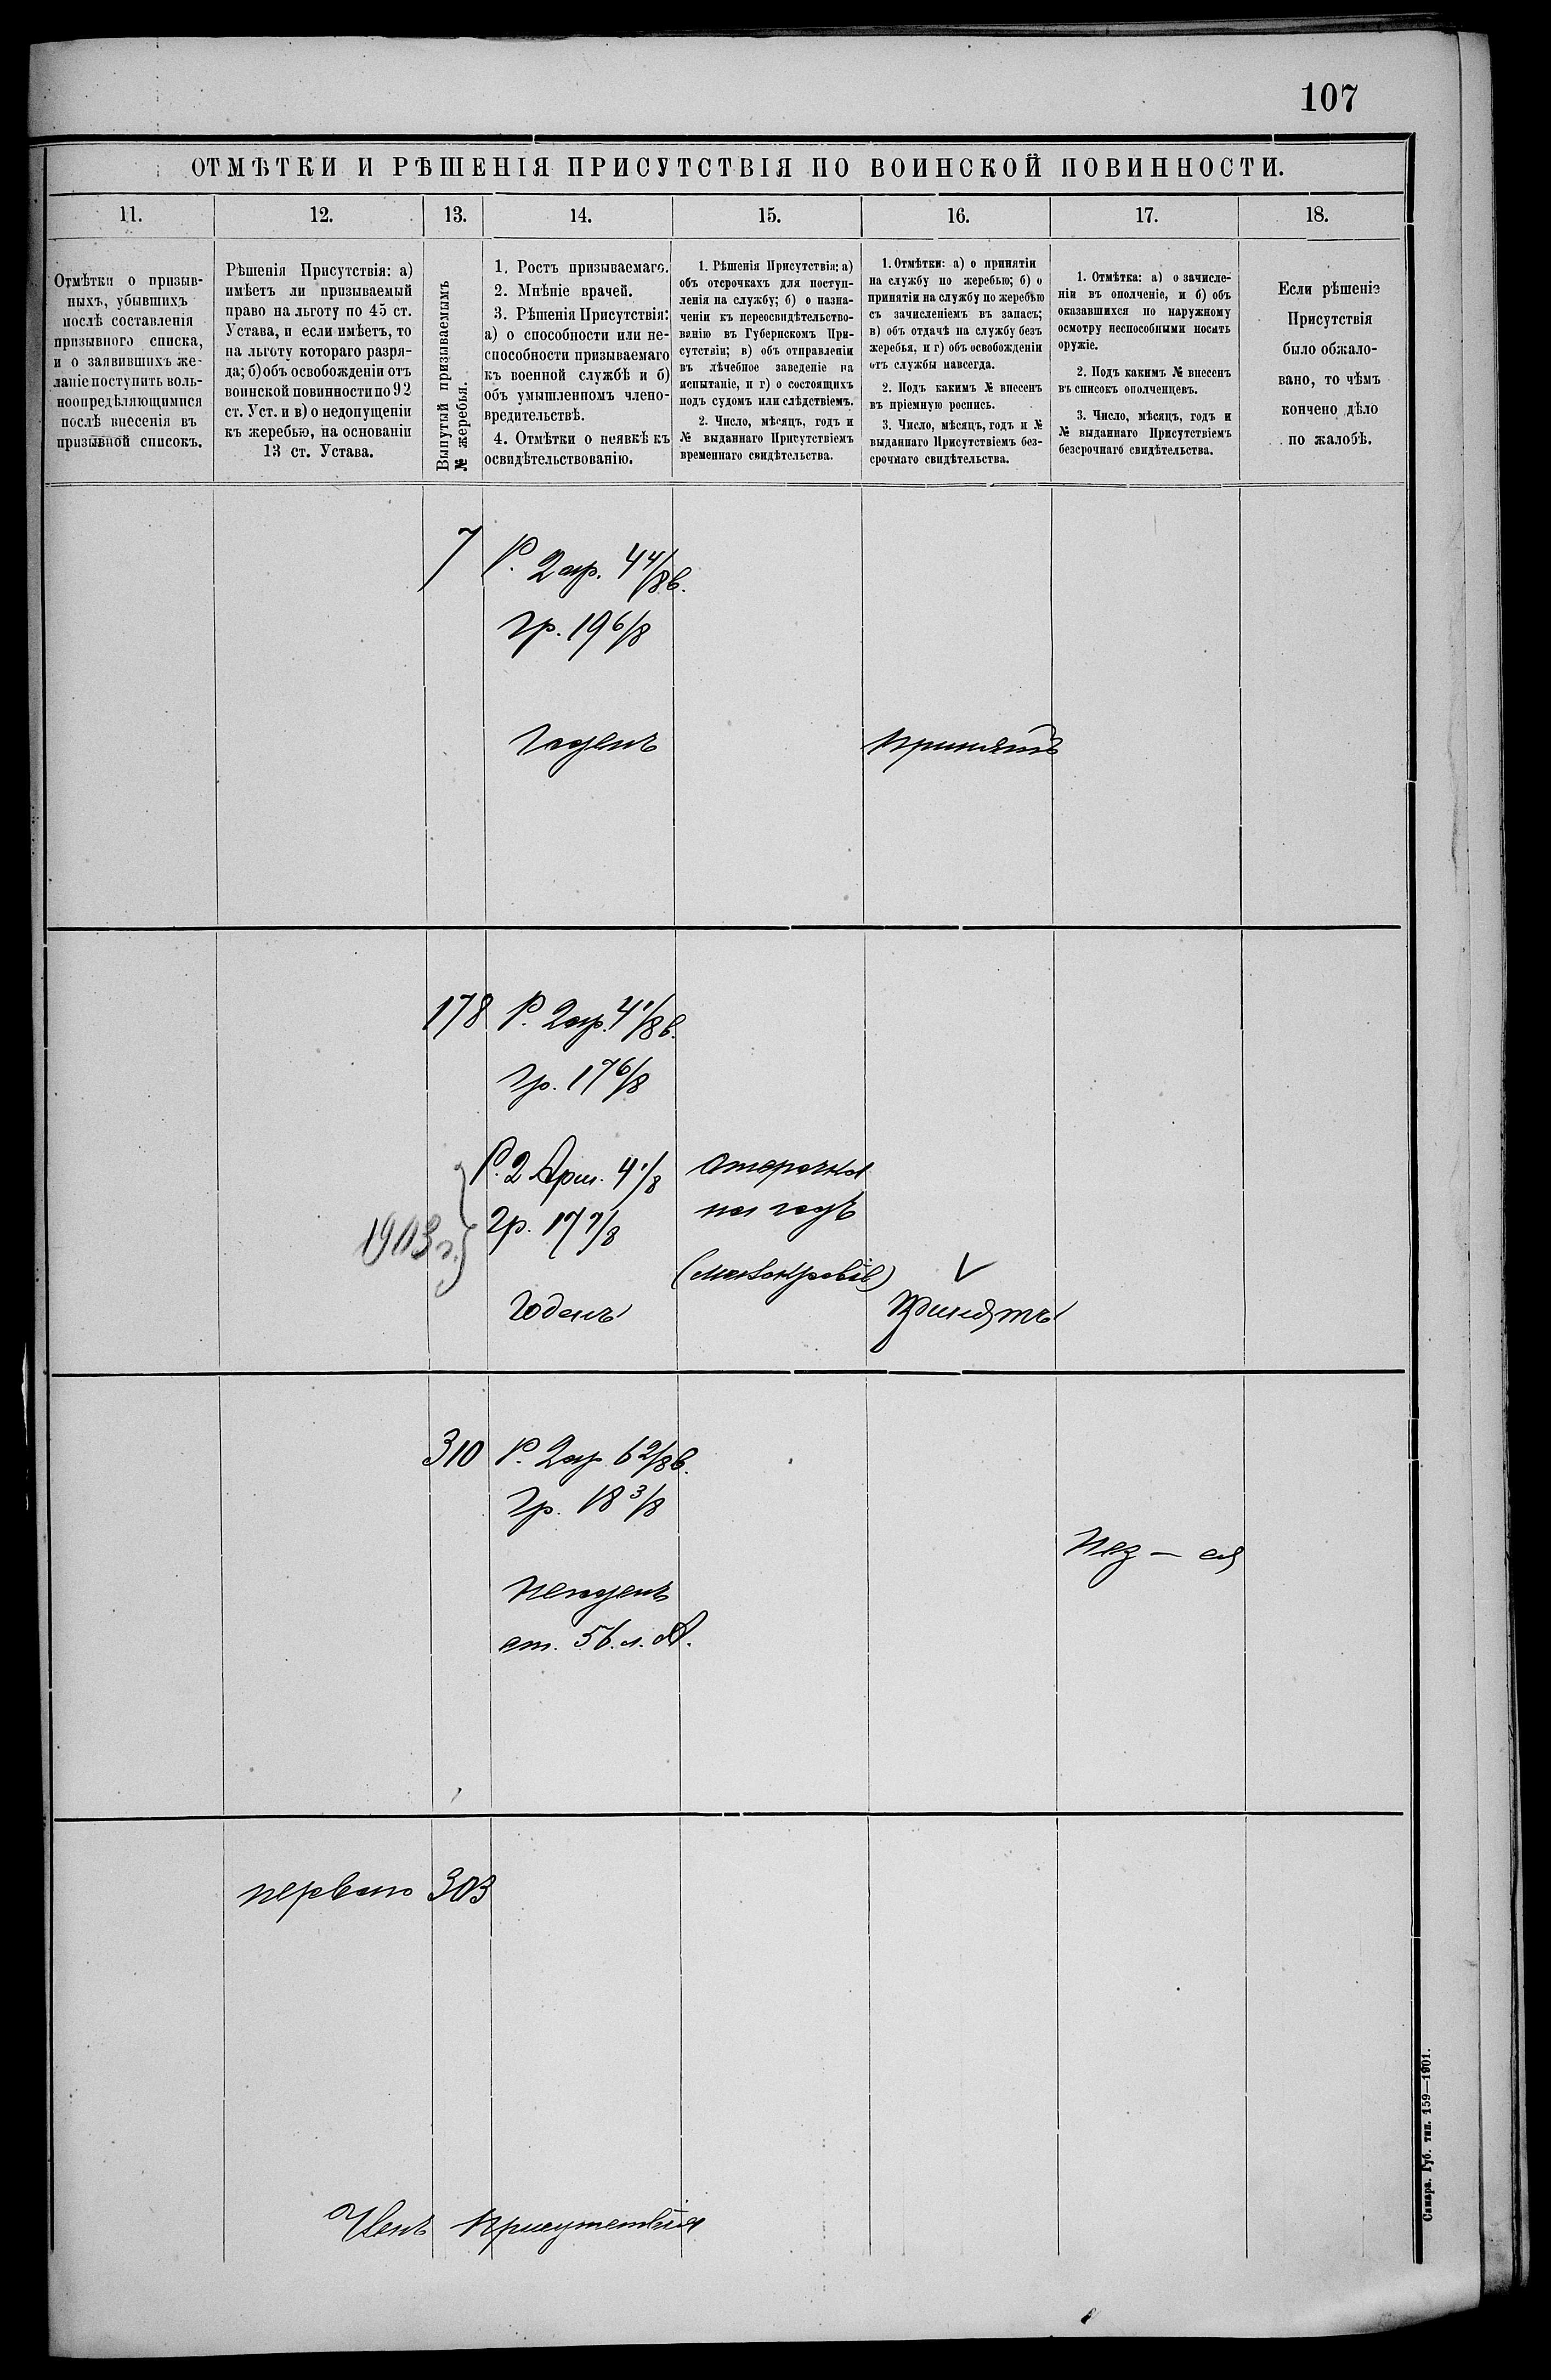 107
ОТМѢТКИ И РѢШЕНІЯ ПРИСУТСТВІЯ ПО ВОИНСКОЙ ПОВИННОСТИ.
11.
12.
13.
14.
15.
16.
17.
18.
Отмѣтки о призыв-
ныхъ, убывшихъ
послѣ составленія
призывного списка,
и о заявившихъ же-
ланіе поступить воль-
ноопредѣляющимися
послѣ внесенія въ
призывной списокъ.
Рѣшенія Присутствія: а)
имѣетъ ли призываемый
право на льготу по 45 ст.
Устава, и если имѣетъ, то
на льготу котораго разря-
да; б) объ освобожденіи отъ
воинской повинности по 92
ст. Уст. и в) о недопущеніи
къ жеребью, на основаніи
13 ст. Устава.
Вынутый призываемымъ
№ жеребья.
1. Ростъ призываемаго.
2. Мнѣніе врачей.
3. Рѣшенія Присутствія:
а) о способности или не-
способности призываемаго
къ военной службѣ и б)
объ умышленномъ члено-
вредительствѣ.
4. Отмѣтки о неявкѣ къ
освидѣтельствованію.
1. Рѣшенія Присутствія: а)
объ отсрочкахъ для поступ-
ленія на службу; б) о назна-
ченіи къ переосвидѣтельство-
ванію въ Губернскомъ При-
сутствіи; в) объ отправленіи
въ лѣчебное заведеніе на
испытаніе, и г) о состоящихъ
подъ судомъ или слѣдствіемъ.
2. Число, мѣсяцъ, годъ и
№ выданнаго Присутствіемъ
временнаго свидѣтельства.
1. Отмѣтки: а) о принятіи
на службу по жеребью; б) о
принятіи на службу по жеребью
съ зачисленіемъ въ запасъ;
в) объ отдачѣ на службу безъ
жеребья, и г) объ освобожденіи
отъ службы навсегда.
2. Подъ какимъ № внесенъ
въ пріемную роспись.
3. Число, мѣсяцъ, годъ и №
выданнаго Присутствіемъ без-
срочнаго свидѣтельства.
1. Отмѣтка: а) о зачисле-
ніи въ ополченіе, и б) объ
оказавшихся по наружному
осмотру неспособными носить
оружіе.
2. Подъ какимъ № внесенъ
въ списокъ ополченцевъ.
3. Число, мѣсяцъ, годъ и
№ выданнаго Присутствіемъ
безсрочнаго свидѣтельства.
Если рѣшеніе
Присутствія
было обжало-
вано, то чѣмъ
кончено дѣло
по жалобѣ.
7 Р. 2 ар. 4 4/8 в.
Гр. 19 6/8
Годенъ
Принятъ
178 Р. 2 ар. 4 1/8 в.
Гр. 17 6/8
Р. 2 Арш. 4 1/8
1903 г. Гр. 17 7/8
Годенъ
отсрочка
на годъ
(малокровіе)
Принятъ
310 Р. 2 ар. 6 2/8 в.
Гр. 18 3/8
Негоденъ
ст. 56. л. А.
Нез — ся
первого 303
Членъ Присутствія
Самара. Губ. тип. 159—1901.